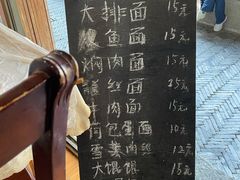 大排面 15元
爆鱼面 15元
焖肉面 15元
鳝丝面 25元
牛肉面 15元
荷包蛋面 10元
雪菜肉丝 12元
大馄饨 15元